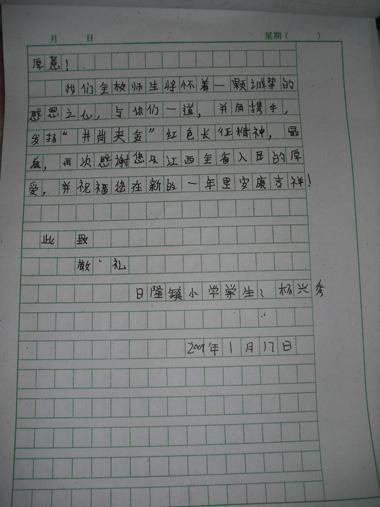 月 日 星期( )
厚意!
我们全校师生将怀着一颗诚挚的
感恩之心,与你们一道,并肩携手,
发扬“井岗夹金”红色长征精神,最
后,再次感谢您及江西全省人民的厚
爱,并祝福您在新的一年里安康吉祥!
此致
敬礼
日隆镇小学学生:杨兴秀
2009年1月17日